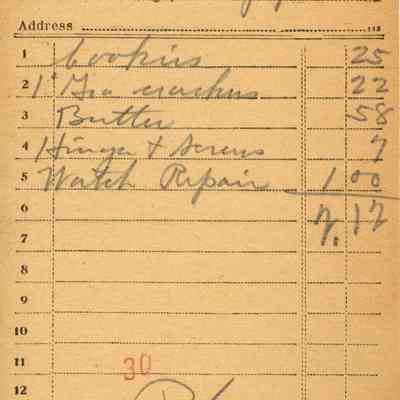 Address
1 Cookies 25
2 1# Gra crackers 22
3 Butter 58
4 Hinge & Screws 7
5 Watch Repair 1 00
6 2.12
7
8
9
10
11
30
12